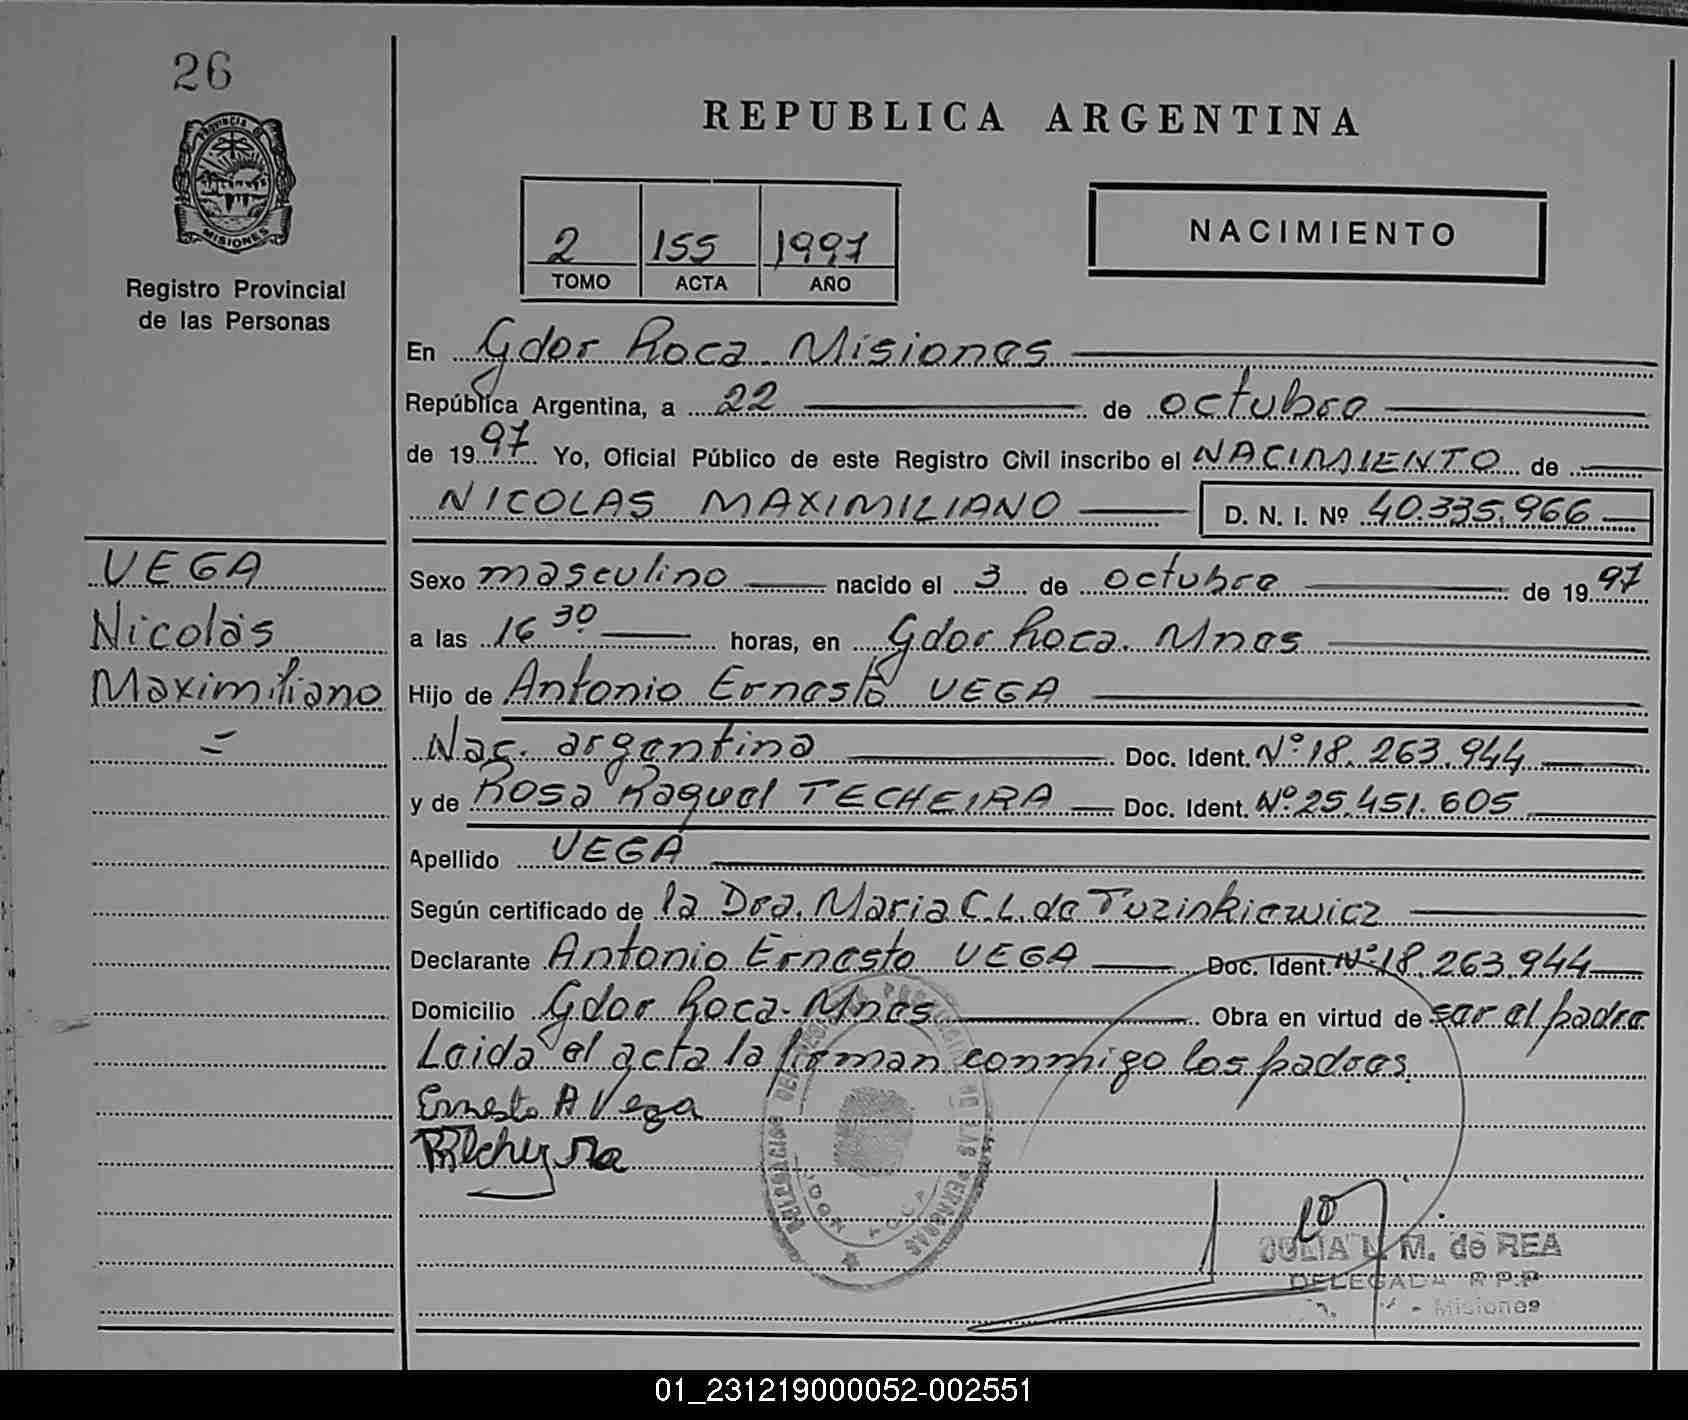 26
PROVINCIA DE
MISIONES
Registro Provincial
de las Personas
REPUBLICA ARGENTINA
2 155 1997
TOMO ACTA AÑO
NACIMIENTO
En Gdor Roca Misiones
República Argentina, a 22 de octubre
de 1997 Yo, Oficial Público de este Registro Civil inscribo el NACIMIENTO de
NICOLAS MAXIMILIANO D. N. I. Nº 40.335.966
VEGA
Nicolás
Maximiliano
=
Sexo masculino nacido el 3 de octubre de 1997
a las 16 30 horas, en Gdor Roca. Mnes
Hijo de Antonio Ernesto VEGA
Nac. argentina Doc. Ident. Nº 18.263.944
y de Rosa Raquel TECHEIRA Doc. Ident. Nº 25.451.605
Apellido VEGA
Según certificado de la Dra. Maria C.L. de Tuzinkiewicz
Declarante Antonio Ernesto VEGA Doc. Ident. Nº 18.263.944
Domicilio Gdor Roca. Mnes Obra en virtud de ser el padre
Leida el acta la firman conmigo los padres.
Ernesto A Vega
DELEGACION DEL REGISTRO PROVINCIAL DE LAS PERSONAS
GDOR ROCA
JULIA L. M. de REA
DELEGADA R.P.P
- Misiones
01_231219000052-002551